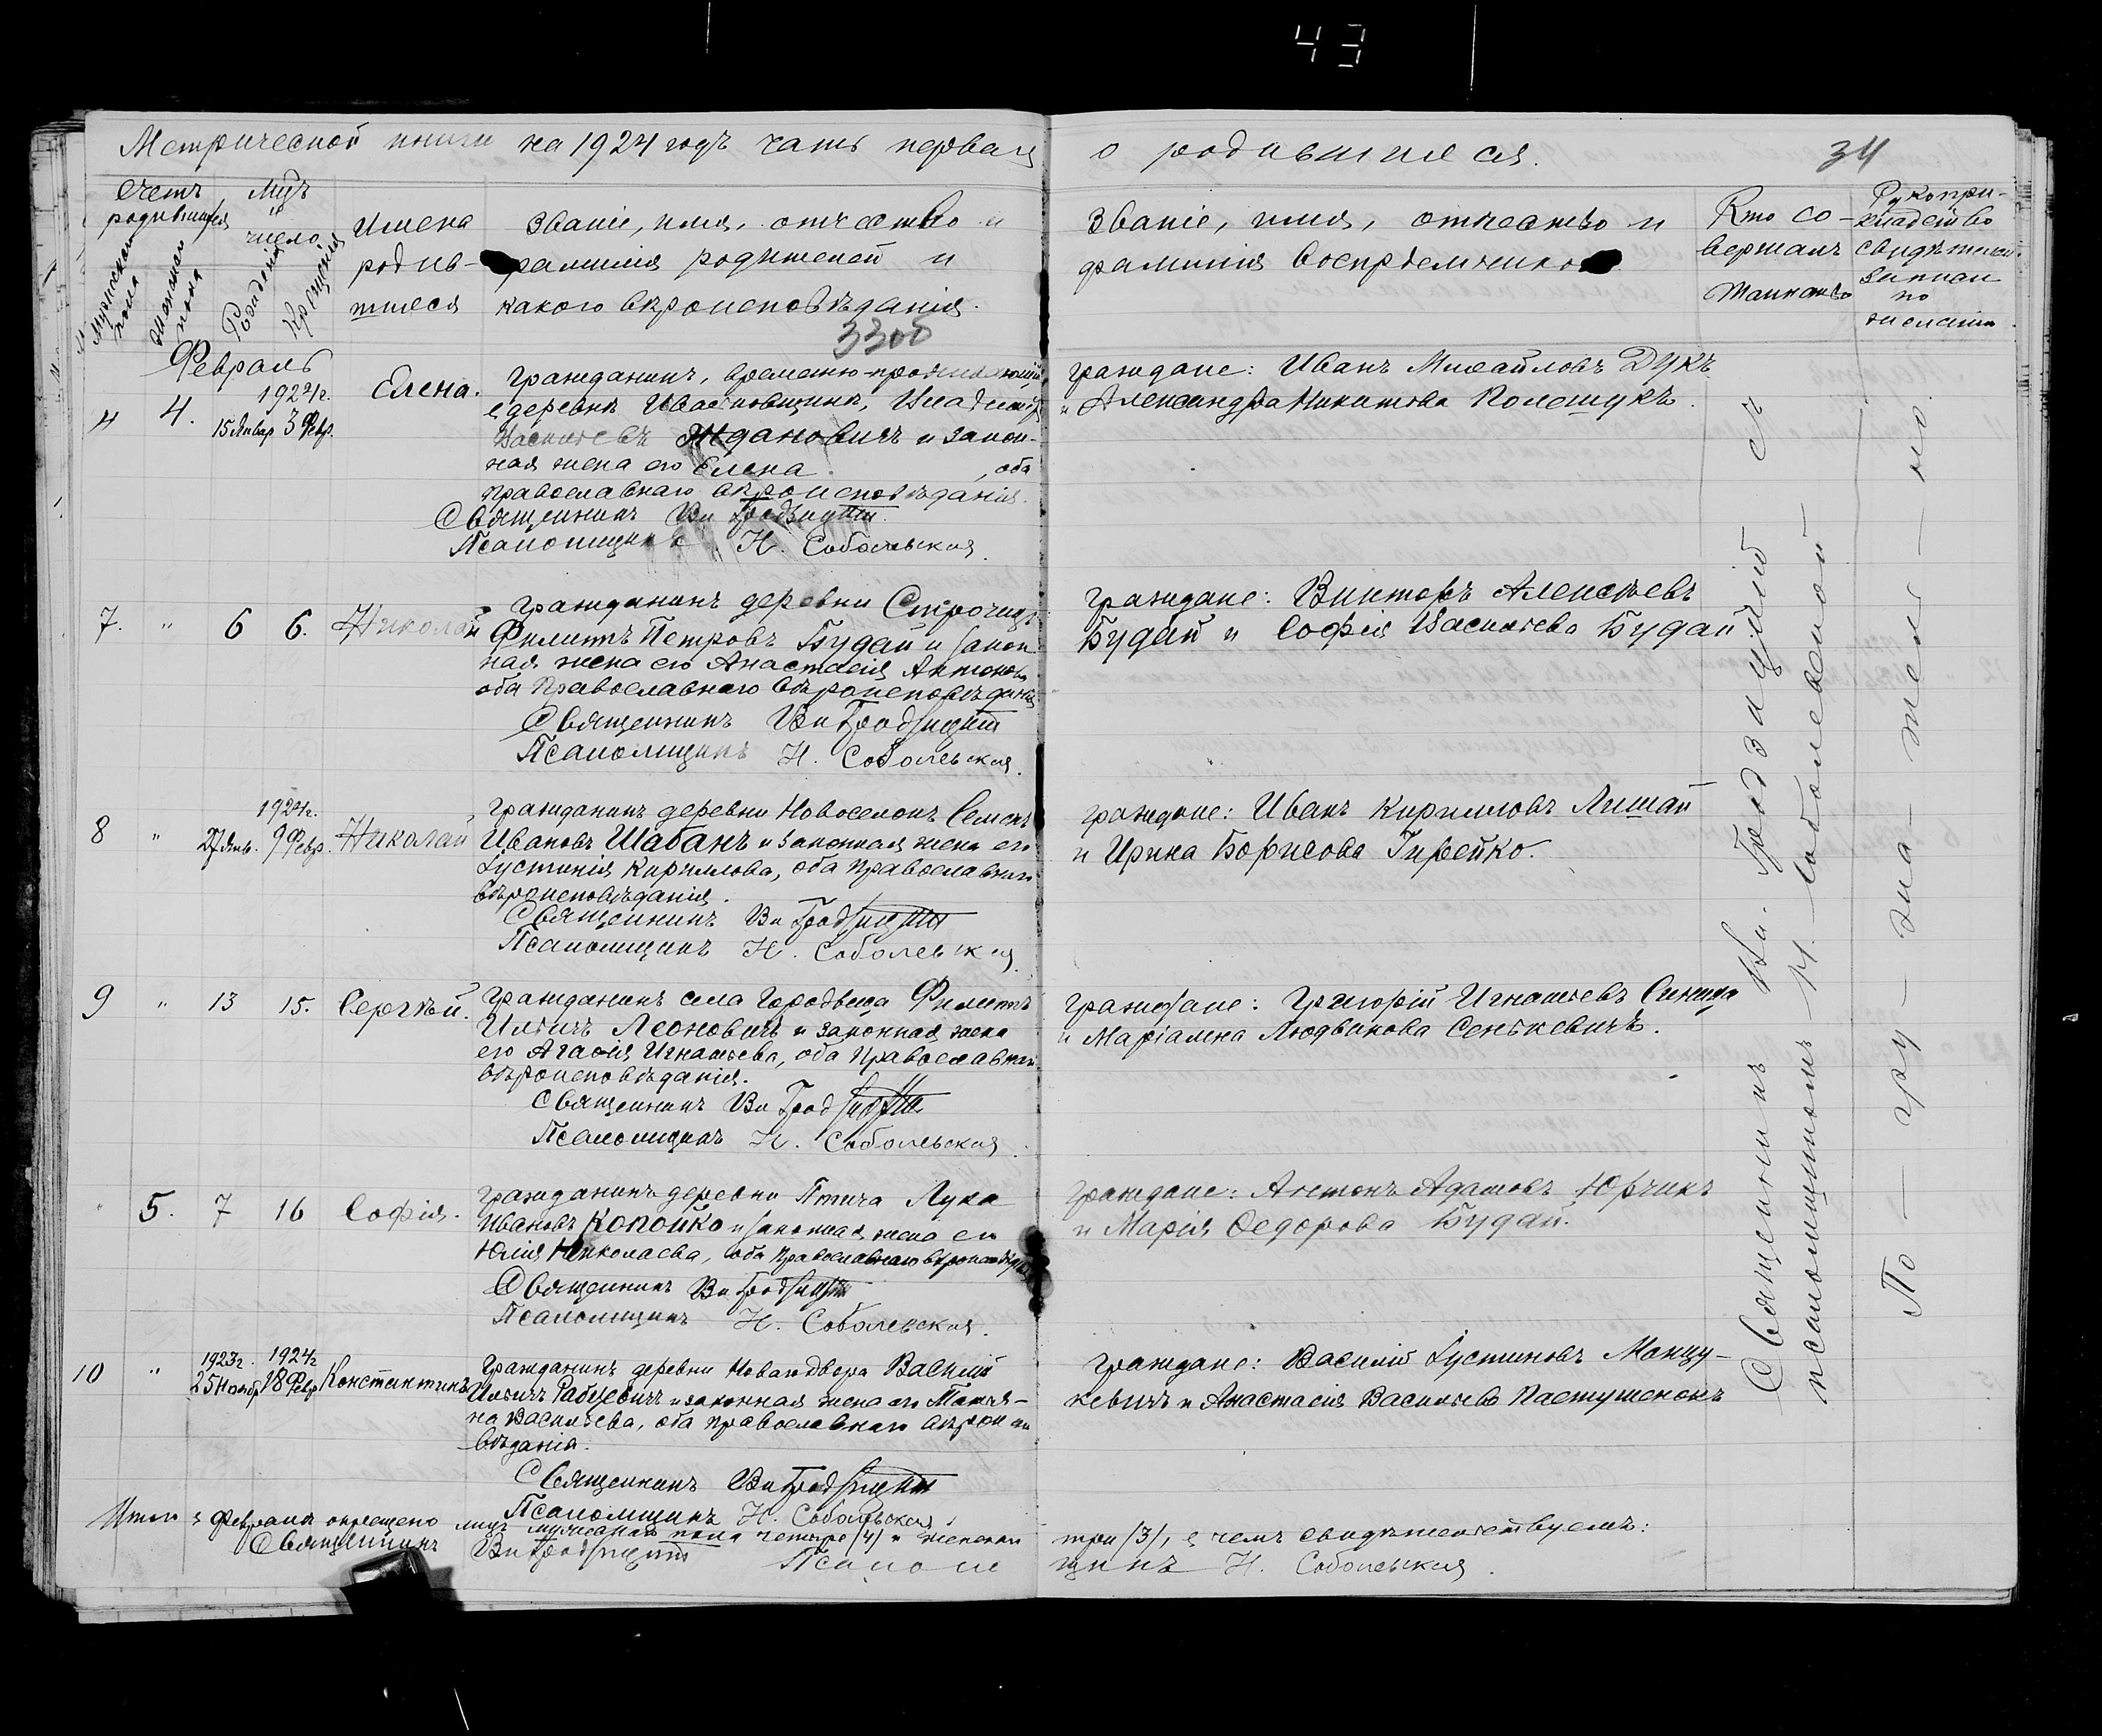 43
Метрической книги на 1924 годъ часть первая о родившихся.
34
Счетъ родившихся
Мужескаго пола
Женскаго пола
Мцъ и число
Рожденія
Крещенія
Имена родив-
шихся
Званіе, имя, отчество и
фамилія родителей и
какого вѣроисповѣданія.
Званіе, имя, отчество и
фамилія воспріемниковъ
Кто со-
вершалъ
таинство
Рукопри-
кладство
свидѣтелей
записи
по
желанію
33об
Февраль
4 4. 1924г. 15 Январ 3 Февр. Елена.
Гражданинъ, временно-проживающій
въ деревнѣ Ивасновщинѣ, Владиміръ
Васильевъ Ждановичъ и закон-
ная жена его Елена , оба
православнаго вѣроисповѣданія.
Священникъ Вл Гродзицкій
Псаломщикъ Н. Соболевская.
Граждане: Иванъ Михайловъ Дукъ
и Александра Никитова Полещукъ.
7. " 6 6. Николай
Гражданинъ деревни Строчицъ
Филиппъ Петровъ Будай и закон
ная жена его Анастасія Антонова
оба Православнаго вѣроисповѣданія
Священникъ Вл Гродзицкій
Псаломщикъ Н. Соболевская.
Граждане: Викторъ Алексѣевъ
Будай и Софія Васильева Будай
8 " 27 Янв. 1924г. 9 Февр. Николай
Гражданинъ деревни Новоселокъ Семенъ
Ивановъ Шабанъ и законная жена его
Іустинія Кириллова, оба Православнаго
вѣроисповѣданія.
Священникъ Вл Гродзицкій
Псаломщикъ Н. Соболевская.
Граждане: Иванъ Кирилловъ Лишай
и Ирина Борисова Гирейко.
9 " 13 15. Сергѣй.
Гражданинъ села Городища Филиппъ
Ильичъ Леоновичъ и законная жена
его Агафія Игнатьева, оба Православнаго
вѣроисповѣданія.
Священникъ Вл Гродзицкій
Псаломщикъ Н. Соболевская.
Граждане: Григорій Игнатьевъ Синица
и Маріамна Людвикова Сенькевичъ.
" 5. 7 16 Софія.
Гражданинъ деревни Птича Лука
Ивановъ Копойко и законная жена его
Юлія Николаева, оба Православнаго вѣроисповѣд
Священникъ Вл Гродзицкій
Псаломщикъ Н. Соболевская.
Граждане: Антонъ Адамовъ Юрчикъ
и Марія Федорова Будай.
10 " 1923г. 25 Нояб 1924г 18 Февр Константинъ
Гражданинъ деревни Новаго двора Василій
Ильичъ Рабцевичъ и законная жена его Татья-
на Васильева, оба православнаго вѣроиспо
вѣданія.
Священникъ Вл Гродзицкій
Псаломщикъ Н. Соболевская.
Граждане: Василій Іустиновъ Манцу-
кевичъ и Анастасія Васильева Пастушенокъ
Итого въ Февралѣ окрещено лицъ мужескаго пола четыре (4) и женскаго три (3), въ чемъ свидѣтельствуемъ:
Священникъ Вл Гродзицкій Псаломщикъ Н. Соболевская.
Священникъ Вл. Гродзицкій съ
псаломщикомъ Н. Соболевской
По — гру — зна — жен — но.